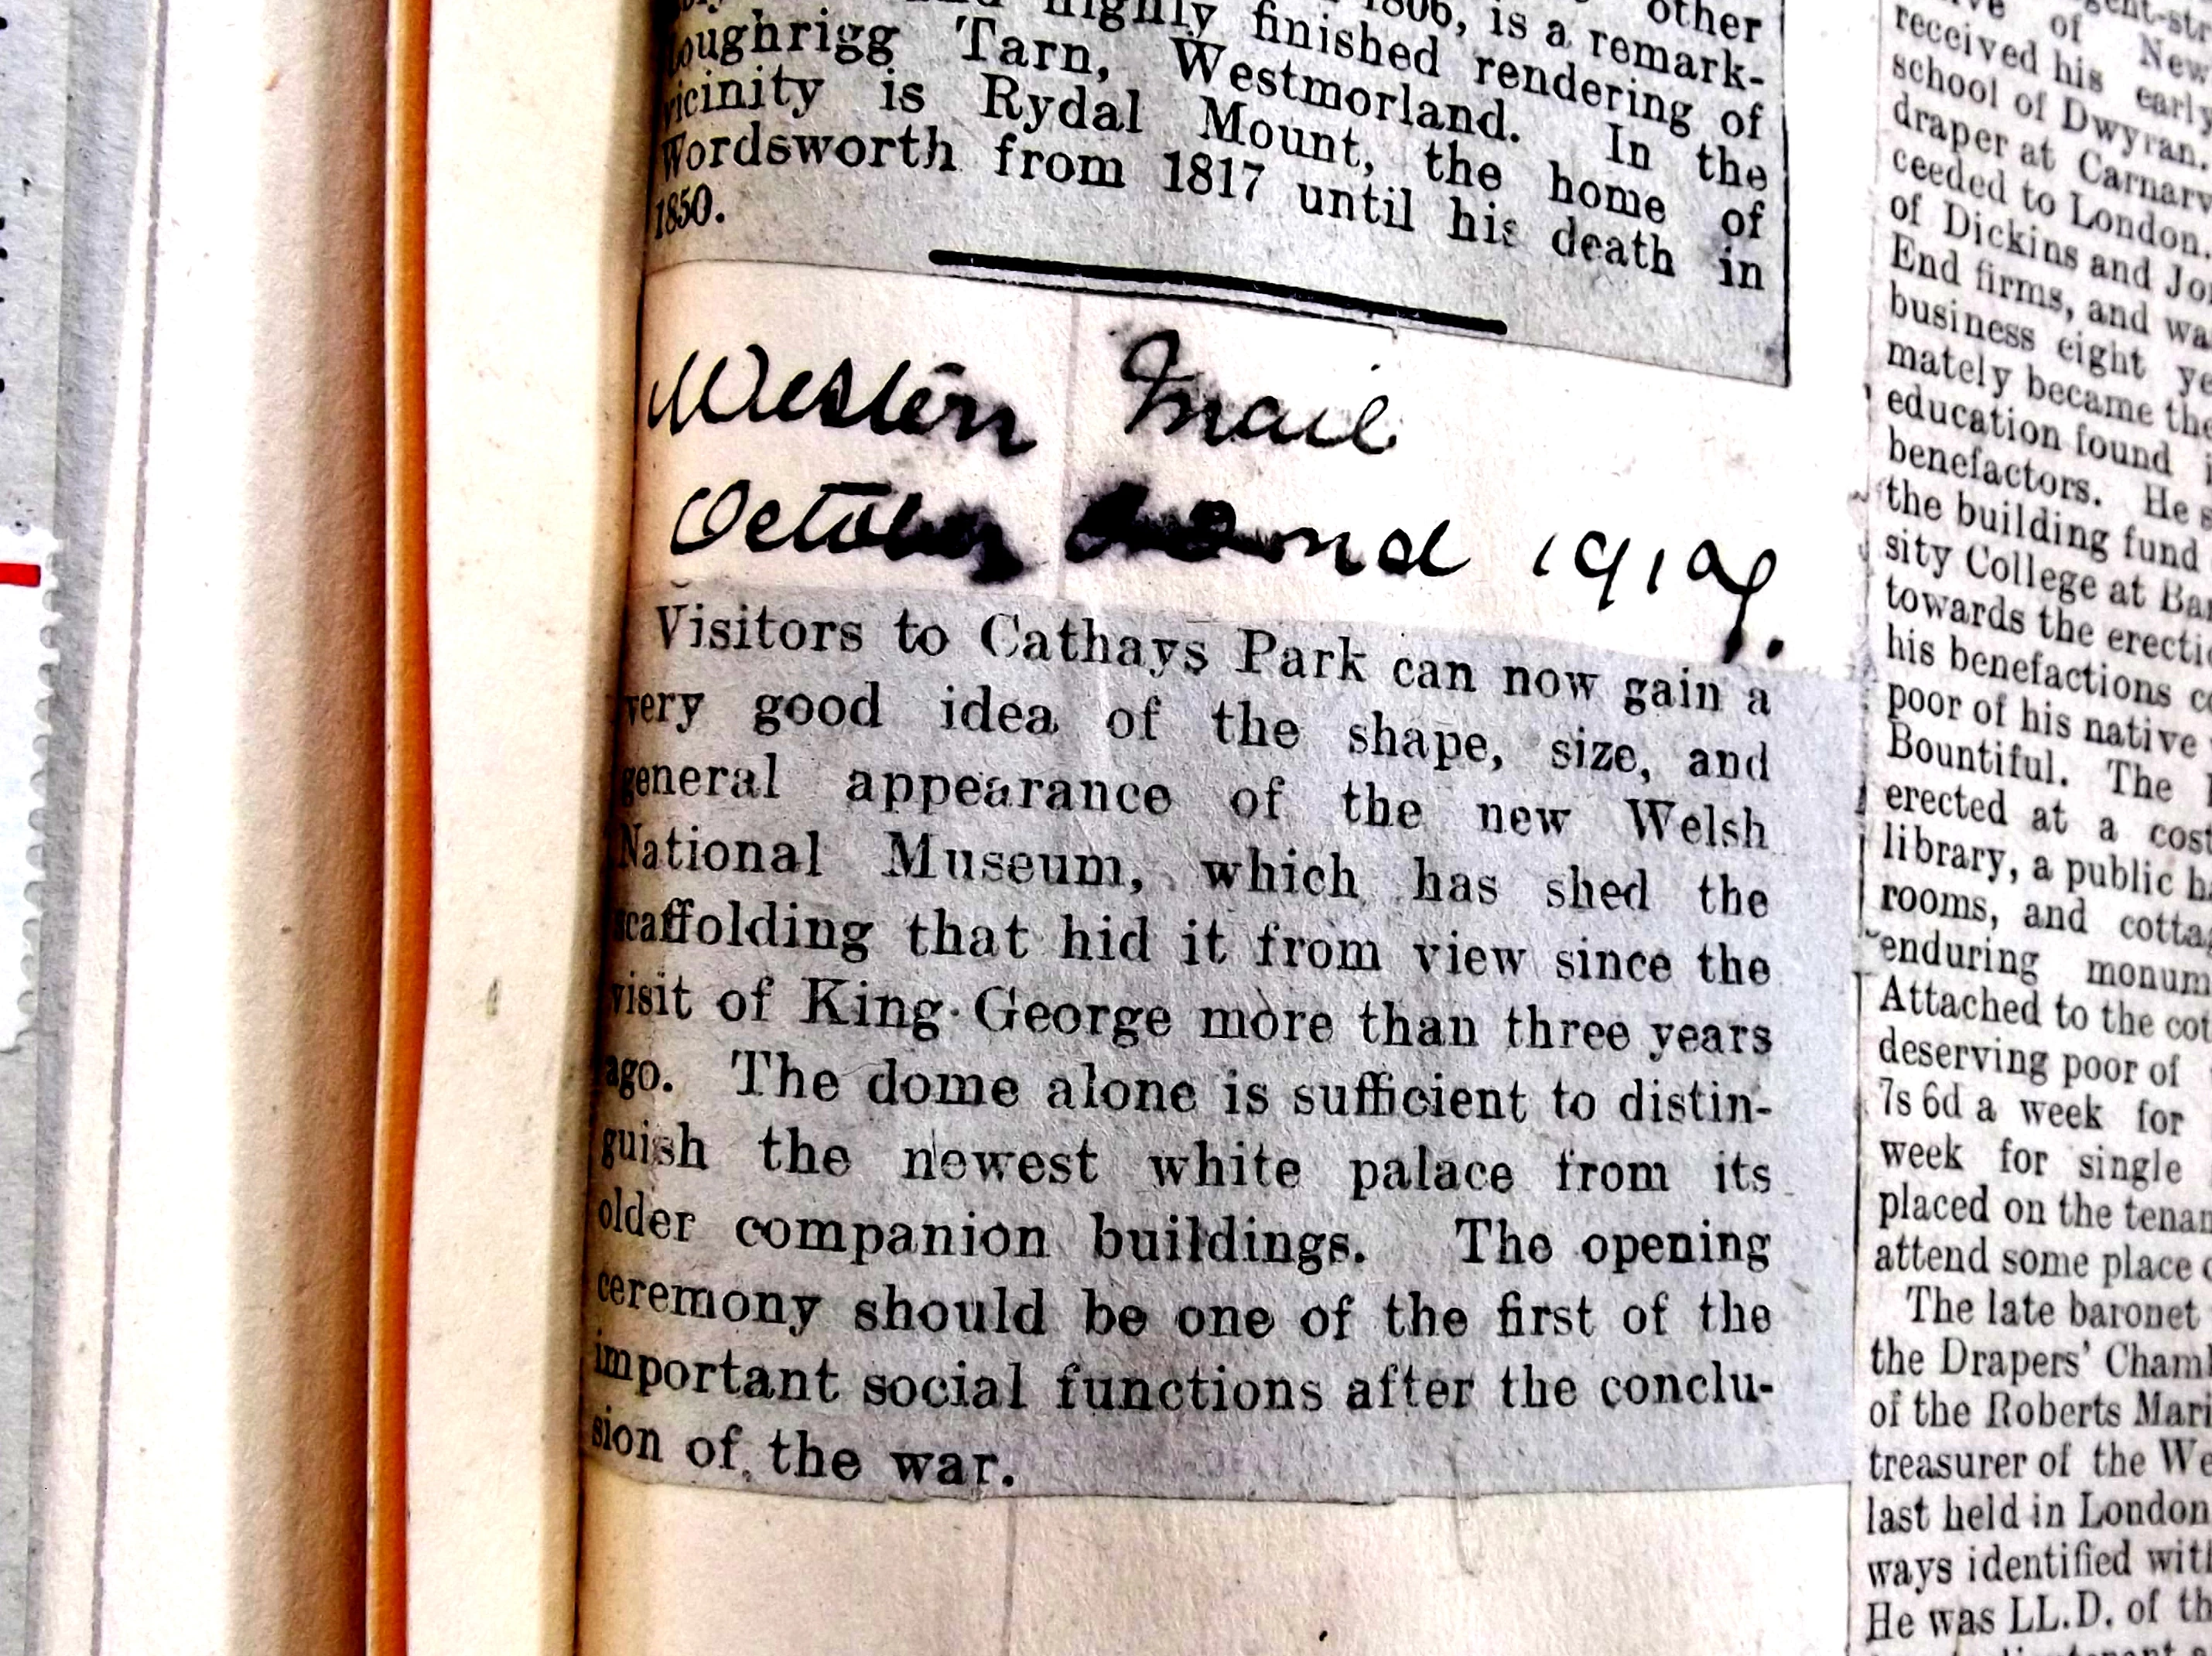 1806, is a remark-
highly finished rendering of
Tarn, Westmorland. In the
vicinity is Rydal Mount, the home of
Wordsworth from 1817 until his death in
1850.
Western Mail
October 1919.
Visitors to Cathays Park can now gain a
very good idea of the shape, size, and
general appearance of the new Welsh
National Museum, which has shed the
scaffolding that hid it from view since the
visit of King George more than three years
ago. The dome alone is sufficient to distin-
guish the newest white palace from its
older companion buildings. The opening
ceremony should be one of the first of the
important social functions after the conclu-
sion of the war.
of New
received his early
school of Dwyran.
draper at
ceeded to London.
of Dickins and
End firms, and
business eight
mately became the
education found
benefactors. He
the building fund
sity College at
towards the
his benefactions
poor of his native
Bountiful. The
erected at a cost
library, a public
rooms, and
enduring
Attached to the
deserving poor of
7s 6d a week for
week for single
placed on the
attend some place
The late baronet
the Drapers'
of the Roberts
treasurer of the
last held in London
ways identified
He was LL.D. of